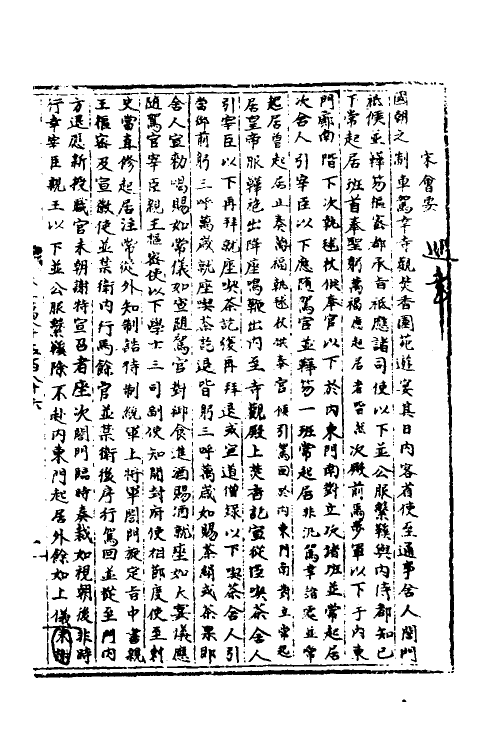 宋會要
巡幸
國朝之制車駕幸寺觀焚香園苑遊宴其日內客省使至通事舍人閤門
祗候並鞾笏樞密都承旨祗應諸司使以下並公服繫鞵與內侍都知已
下常起居班首奏聖躬萬福應起居者皆然次殿前馬步軍以下于內東
門廊南階下次執毬杖供奉官以下於內東門南對立次諸班並常起居
次舍人引宰臣以下應隨駕官並鞾笏一班常起居非汎駕幸諸處並常
起居曾起居止奏萬福執毬杖供奉官候引駕回於內東門南對立常起
居皇帝服鞾袍出降座鳴鞭出內至寺觀殿上焚香記宣從臣喫茶舍人
引宰臣以下再拜就座喫茶訖復再拜退或宣道僧錄以下喫茶舍人引
當御前躬三呼萬歲就座喫茶訖退皆躬三呼萬歲如賜茶絹或茶果即
舍人宣勅喝賜如常儀如宣隨駕官對御食進酒賜酒就座如大宴儀應
隨駕官宰臣親王樞密使以下學士三司副使知開封府使相節度使至刺
史當直修起居注常從外知制誥待制統軍上將軍閤門祗定告中書親
王樞密及宣徽使並某衛內行馬餘官並某衛後序行駕回並從至門內
方退應新授職官未朝謝特宣召者座次閤門臨時奏裁如視朝後非時
行幸宰臣親王以下並公服繫鞵除不赴內東門起居外餘如上儀